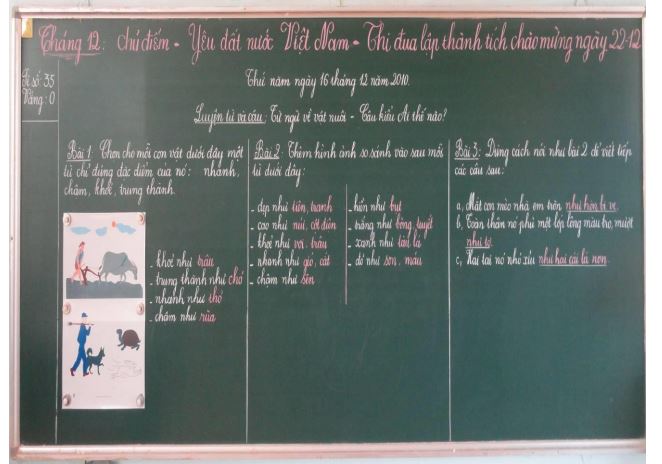 Tháng 12: chủ điểm - Yêu đất nước Việt Nam - Thi đua lập thành tích chào mừng ngày 22-12
Sĩ số: 35
Vắng: 0
Thứ năm ngày 16 tháng 12 năm 2010.
Luyện từ và câu: Từ ngữ về vật nuôi - Câu kiểu Ai thế nào?
Bài 1: Chọn cho mỗi con vật dưới đây một
từ chỉ đúng đặc điểm của nó: nhanh,
chậm, khoẻ, trung thành.
- khoẻ như trâu
- trung thành như chó
- nhanh như thỏ
- chậm như rùa
Bài 2: Thêm hình ảnh so sánh vào sau mỗi
từ dưới đây:
- đẹp như tiên, tranh
- cao như núi, cột điện
- khoẻ như voi, trâu
- nhanh như gió, cắt
- chậm như sên
- hiền như bụt
- trắng như bông, tuyết
- xanh như tàu lá
- đỏ như son, máu
Bài 3: Dùng cách nói như bài 2 để viết tiếp
các câu sau:
a, Mắt con mèo nhà em tròn như hòn bi ve.
b, Toàn thân nó phủ một lớp lông màu tro, mượt
như tơ.
c, Hai tai nó nhỏ xíu như hai cái lá non.